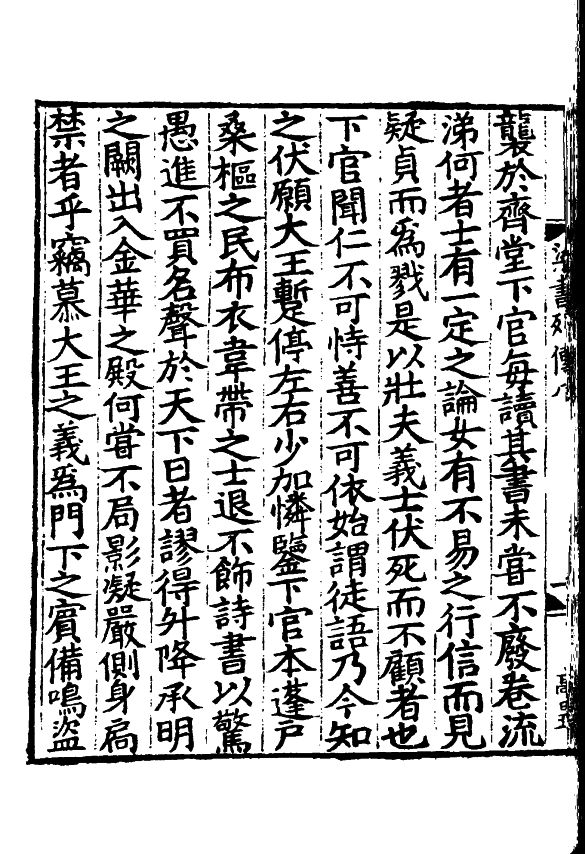 襲於齊堂下官毎讀其書未甞不廢卷流
涕何者士有一定之論女有不易之行信而見
疑貞而爲戮是以壯夫義士伏死而不顧者也
下官聞仁不可恃善不可依始謂徒語乃今知
之伏願大王蹔停左右少加憐鑒下官本蓬戶
桑樞之民布衣韋帶之士退不飾詩書以驚
愚進不買名聲於天下日者謬得升降承明
之闕出入金華之殿何甞不局影凝嚴側身扃
禁者乎竊慕大王之義爲門下之賓備鳴盜